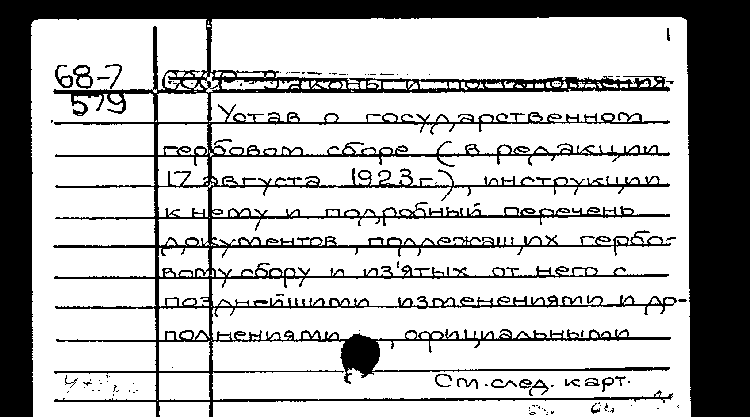 1
68-7
579
СССР - Законы и постановления
Устав о государственном
гербовом сборе (в редакции
17 августа 1923 г.), инструкции
к нему и подробный перечень
документов, подлежащих гербо-
вому сбору и из'ятых от него с
позднейшими изменениями и до-
полнениями, официальными
См. след. карт.